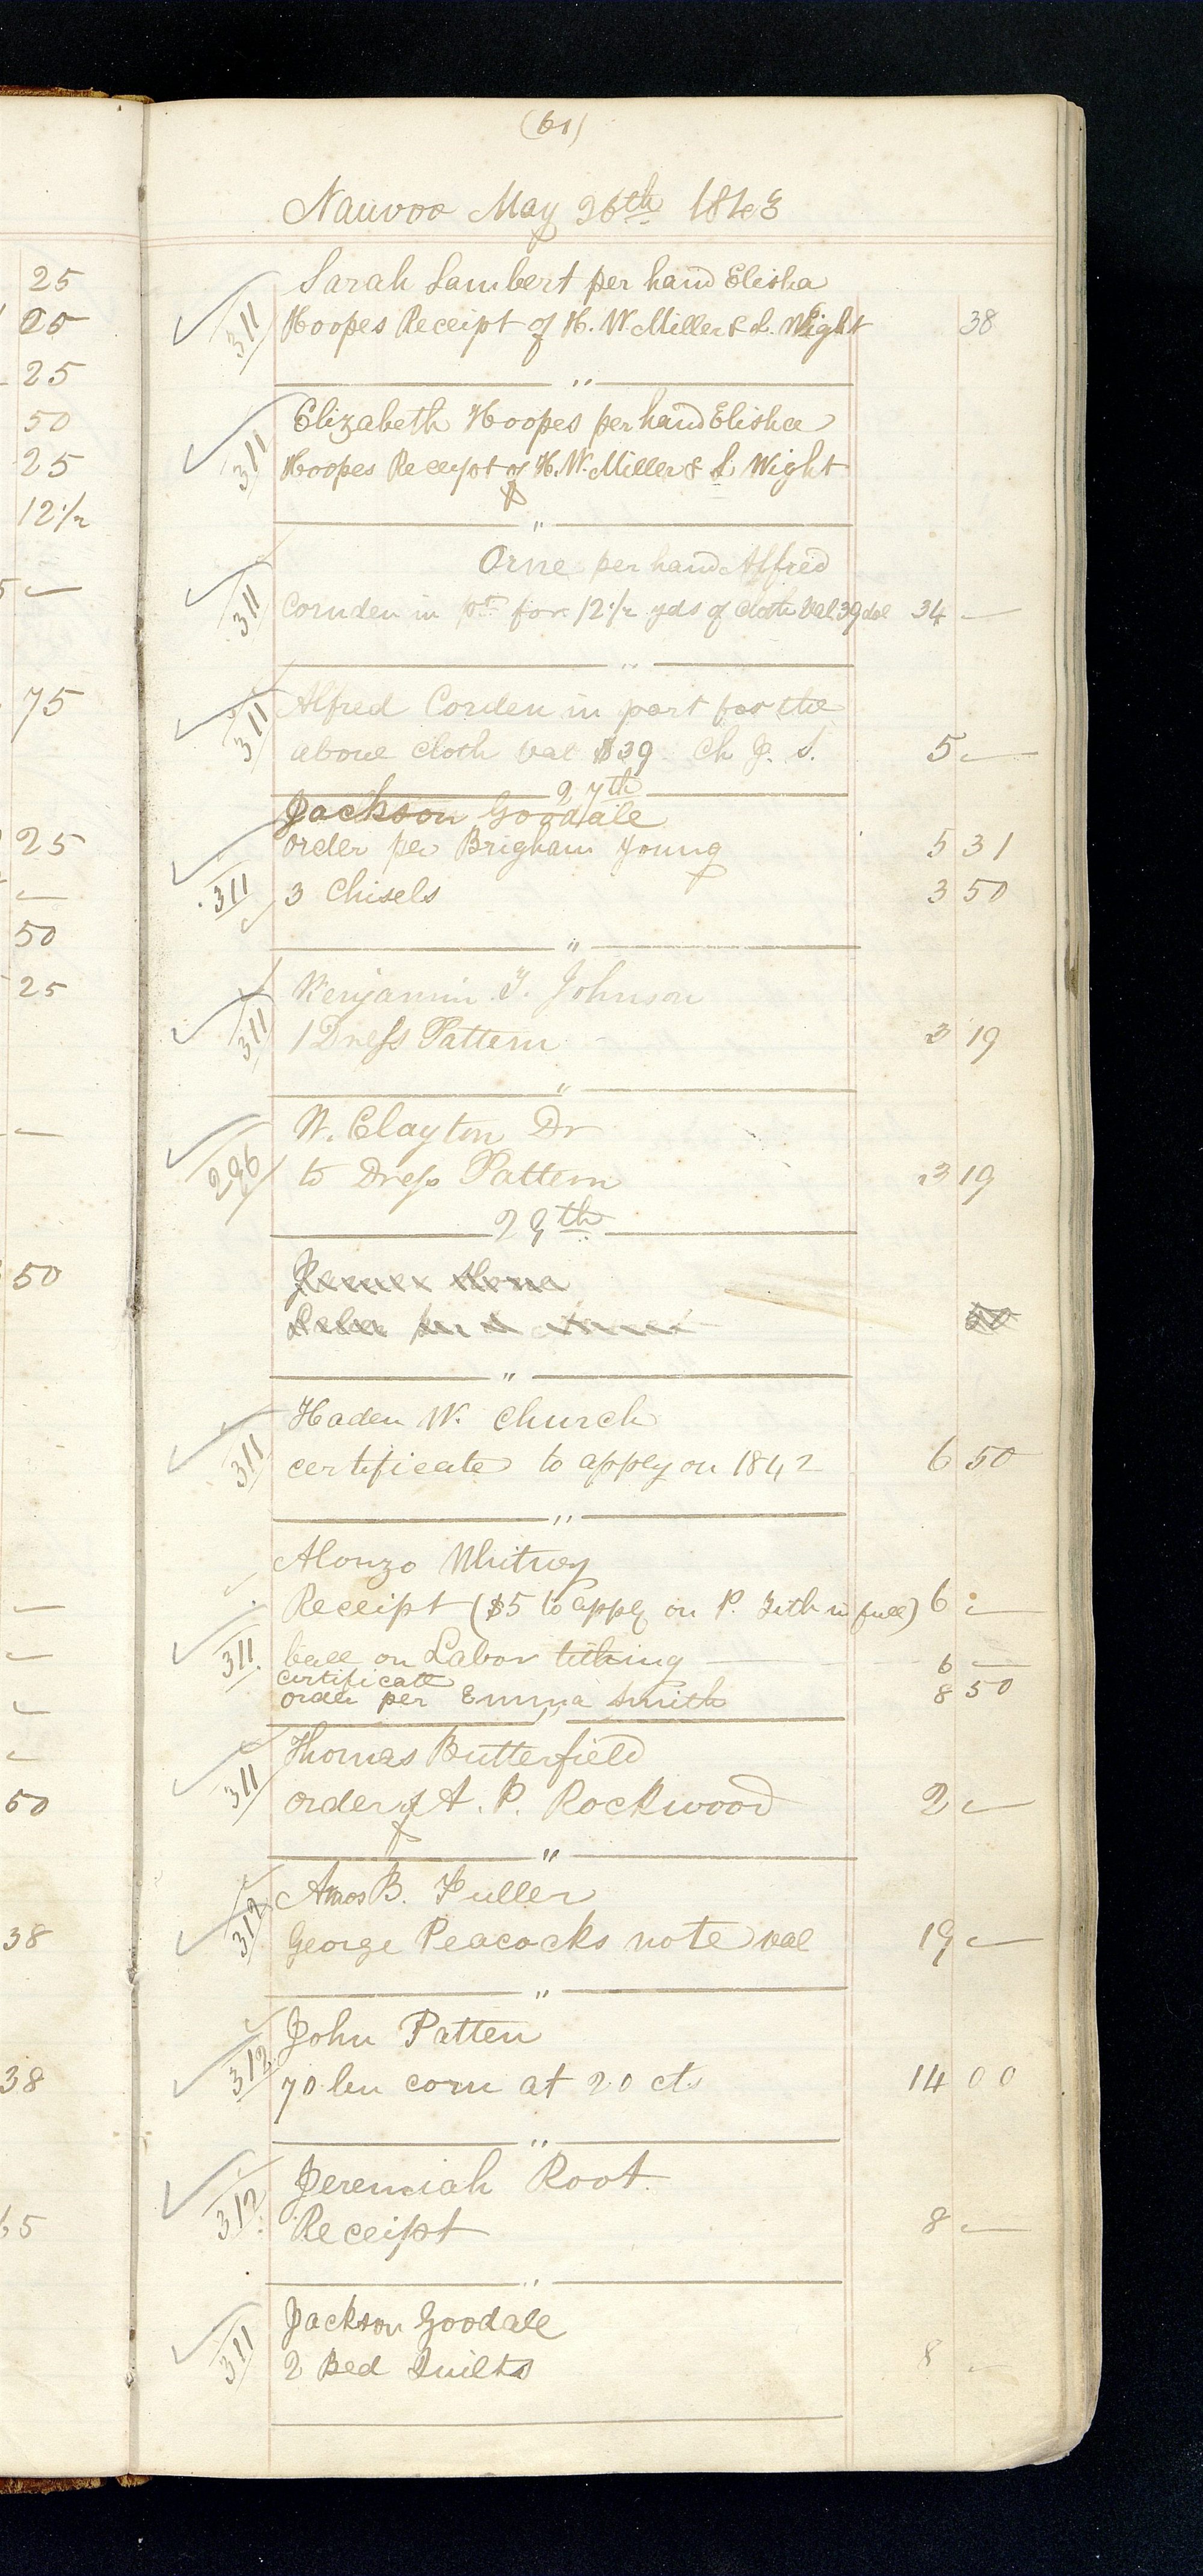 (61)
Nauvoo May 26th 1843
25
Sarah Lambert per hand Elisha
25
311
Hoopes Receipt of H. W. Miller & L. Wight 38
25
"
50
Elizabeth Hoopes per hand Elisha
25
311
Hoopes Receipt of H. W. Miller & L Wight
12 1/2
"
Orne per hand Alfred
311
Cornden in pt for 12 1/2 yds of cloth val 39 dol 34 —
"
75
Alfred Corden in part for the
311
above cloth val $39 Ch J. S. 5 —
27th
Jackson Goodale
25
order per Brigham Young 5 31
311
3 Chisels 3 50
50
"
25
Benjamin F. Johnson
311
1 Dress Pattern 3 19
"
W. Clayton Dr
296
to Dress Pattern 3 19
29th
50
"
Haden W. Church
311
certificate to apply on 1842 6 50
"
Alonzo Whitney
Receipt ($5 to apply on P. Tith in full) 6 —
311
ball on Labor tithing — 6 —
certificate
order per Emma Smith 8 50
"
Thomas Butterfield
50
311
order of A. P. Rockwood 2 —
"
Amos B. Fuller
38
312
George Peacocks note val 19 —
"
John Patten
38
312
70 bu corn at 20 cts 14 00
"
Jeremiah Root
65
312
Receipt 8 —
"
Jackson Goodale
311
2 Bed Quilts 8 —